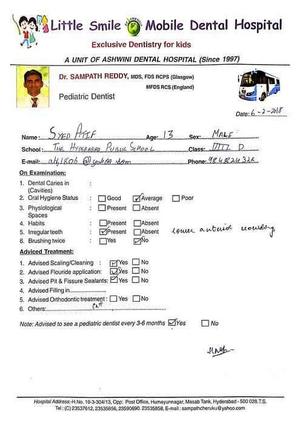 Little Smile Mobile Dental Hospital
Exclusive Dentistry for kids
A UNIT OF ASHWINI DENTAL HOSPITAL (Since 1997)
Dr. SAMPATH REDDY, MDS, FDS RCPS (Glasgow)
MFDS RCS (England)
Pediatric Dentist
Date: 6-2-2018
Name: SYED ATIF Age: 13 Sex: MALE
School: THE HYDERABAD PUBLIC SCHOOL Class: D
E-mail: Phone:
On Examination:
1. Dental Caries in :
(Cavities)
2. Oral Hygiene Status : Good Average Poor
3. Physiological : Present Absent
Spaces
4. Habits : Present Absent
5. Irregular teeth : Present Absent lower anterior crowding
6. Brushing twice : Yes No
Advised Treatment:
1. Advised Scaling/Cleaning : Yes No
2. Advised Flouride application: Yes No
3. Advised Pit & Fissure Sealants: Yes No
4. Advised Filling in
5. Advised Orthodontic treatment : Yes No
6. Others:
Note: Advised to see a pediatric dentist every 3-6 months Yes No
Hospital Address: H.No. 10-3-304/13, Opp: Post Office, Humayunnagar, Masab Tank, Hyderabad - 500 028.T.S.
Tel.: (C) 23537612, 23535856, 23590690. 23535858, E-mail: sampathcheruku@yahoo.com